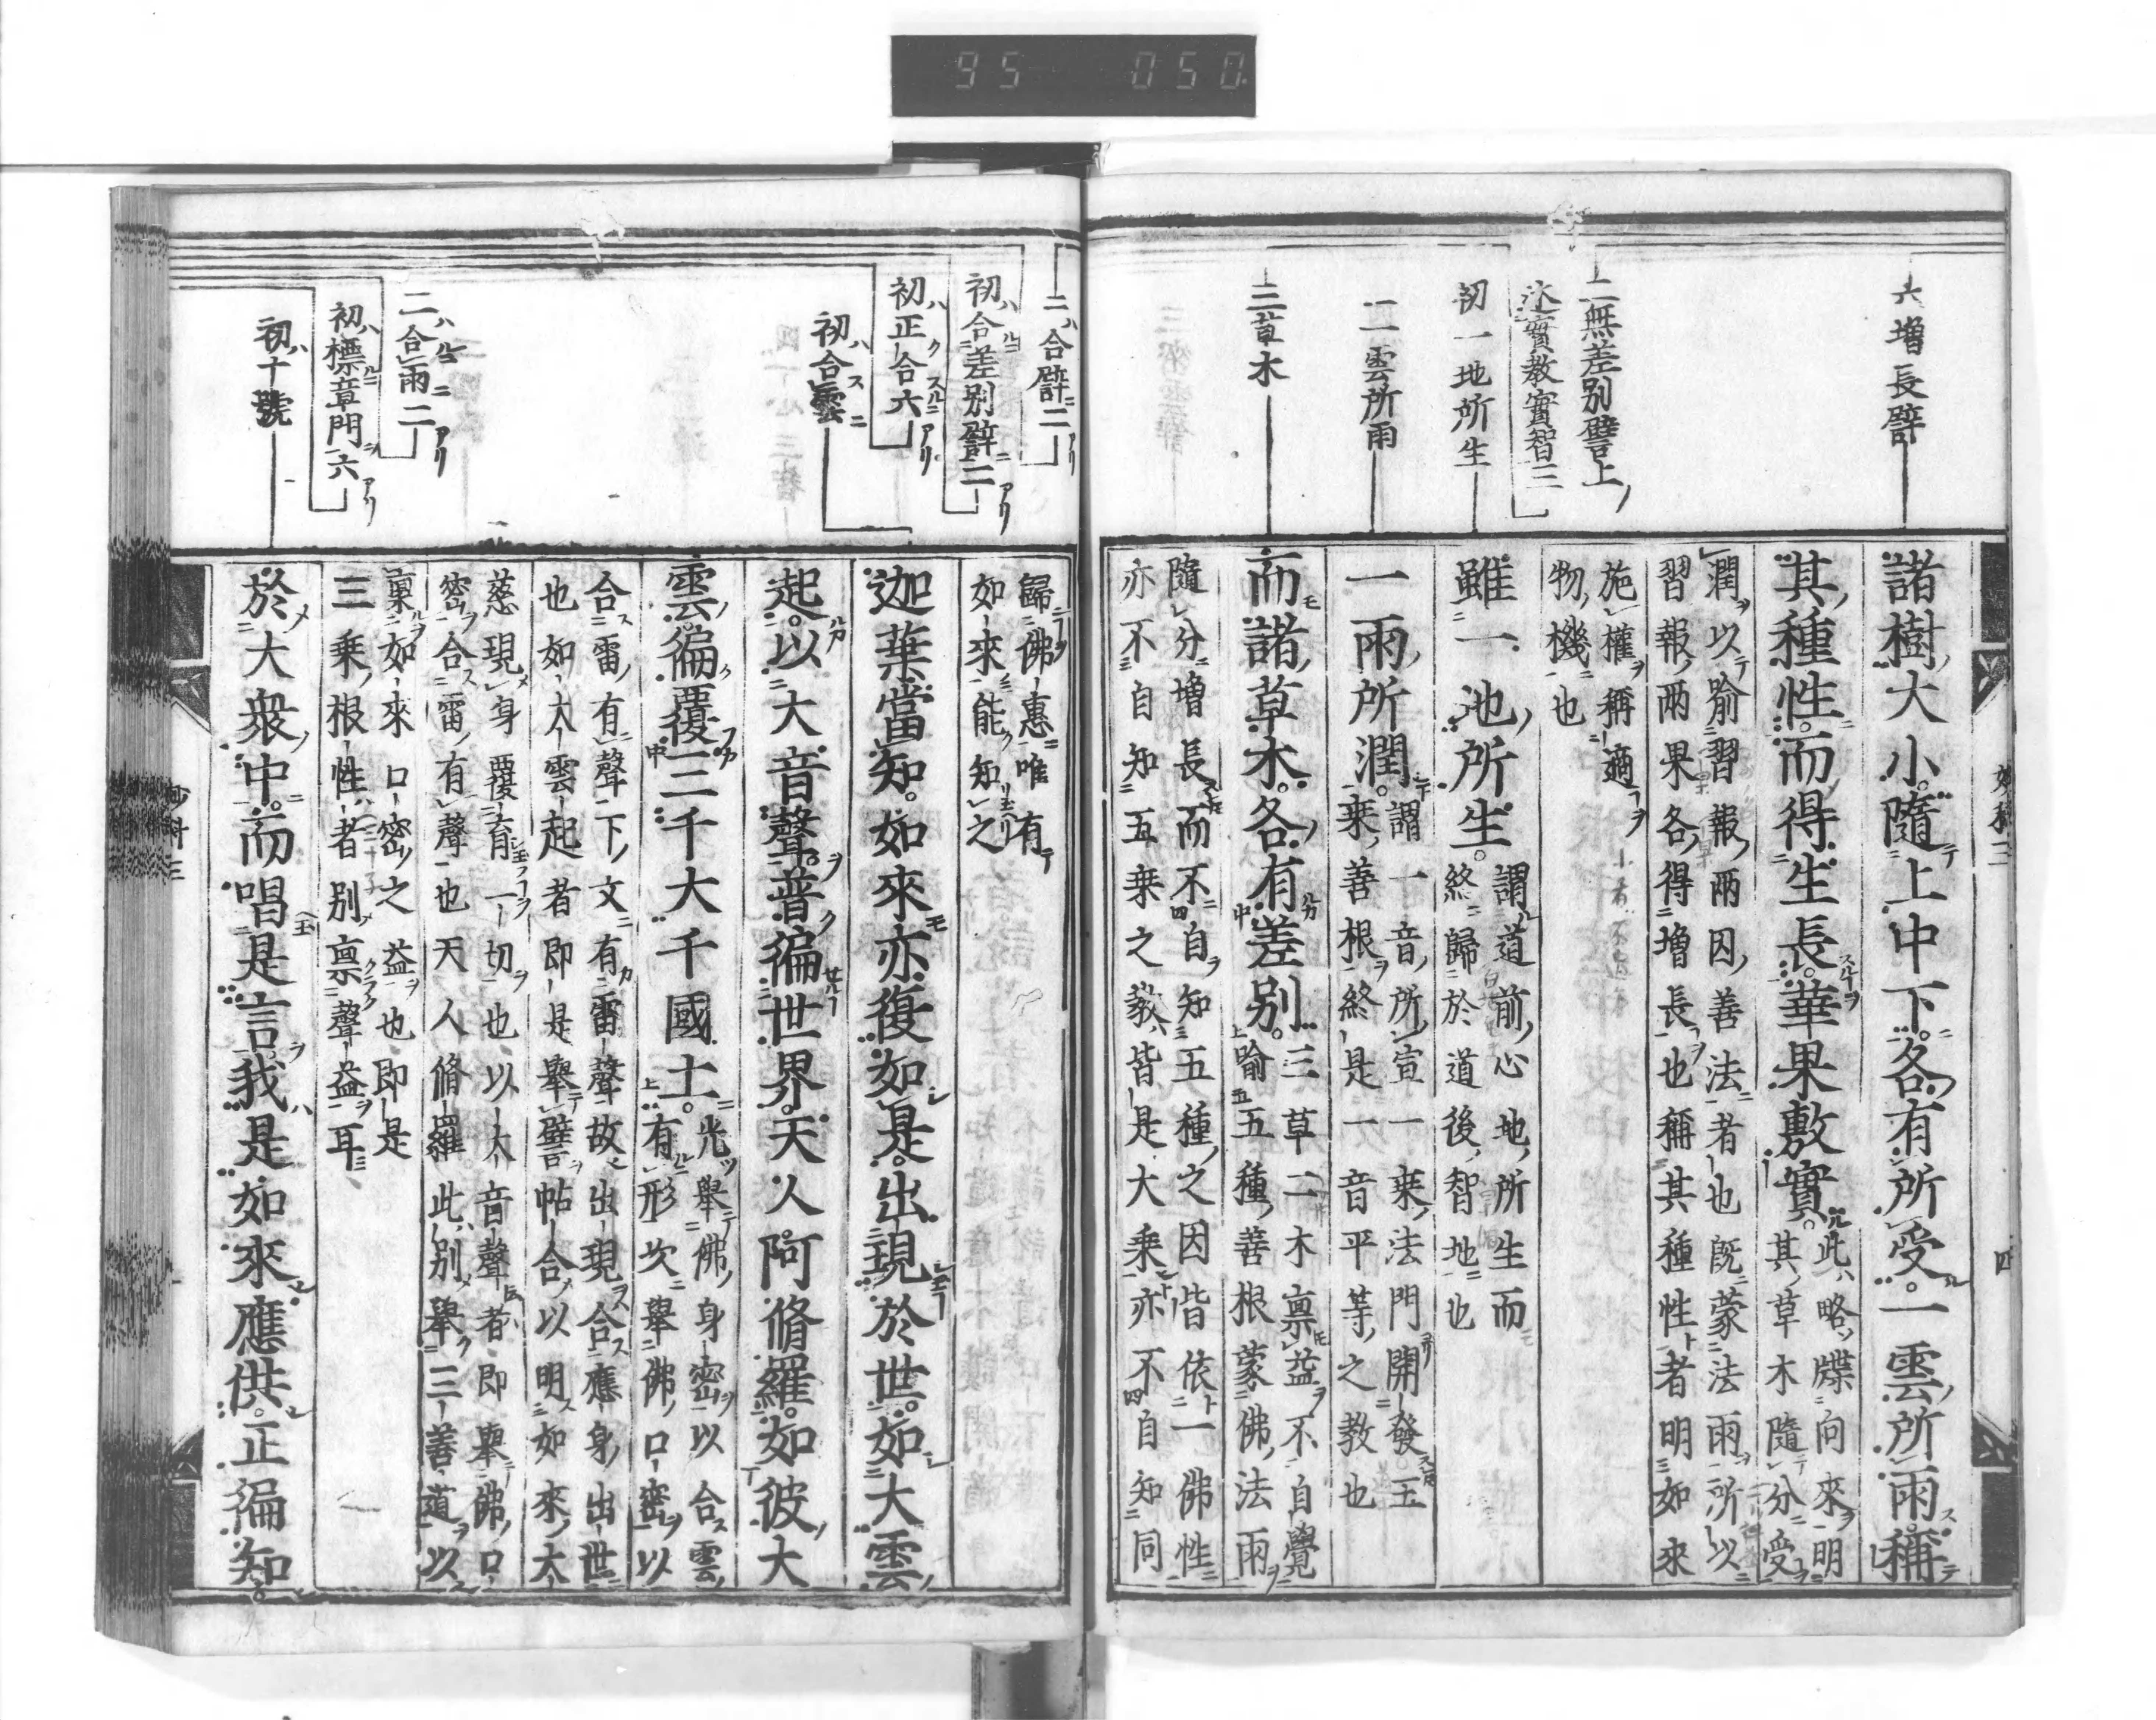 95 050
六增長譬
諸樹大小隨上中下各有所受一雲所雨稱
其種性而得生長華果敷實此略牒向來明
其草木隨分受
潤以喻習報兩因善法者也既蒙法雨所以
習報兩果各得增長也稱其種性者明如來
施權稱適
物機也
二無差別譬上
述實教實智三
初一地所生
雖一地所生謂道前心地所生而
終歸於道後智地也
二雲所雨
一雨所潤謂一音所宣一乘法門開發五
乘善根終是一音平等之教也
三草木
而諸草木各有差別三草二木稟益不自覺
喻五種善根蒙佛法雨
隨分增長而不自知五種之因皆依一佛性
亦不自知五乘之教皆是大乘亦不自知同
二合譬二
歸佛惠唯有
如來能知之
初合差別譬二
初正合六
迦葉當知如來亦復如是出現於世如大雲
初合雲
起以大音聲普徧世界天人阿脩羅如彼大
雲徧覆三千大千國土光舉佛身密以合雲
有形次舉佛口密以
合雷有聲下文有雷聲故出現合應身出世
也如大雲起者即是舉譬帖合以明如來大
慈現身覆育一切也以大音聲者即舉佛口
密合雷有聲也天人脩羅此別舉三善道以
二合雨二
稟如來口密之益也即是
三乘根性者別稟聲益耳
初標章門六
初十號
於大衆中而唱是言我是如來應供正徧知
妙科三